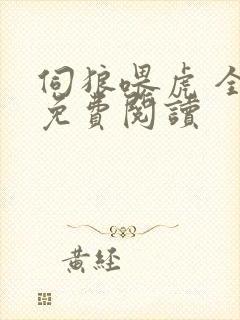 伺狼喂虎 全
免費閱讀
黃經